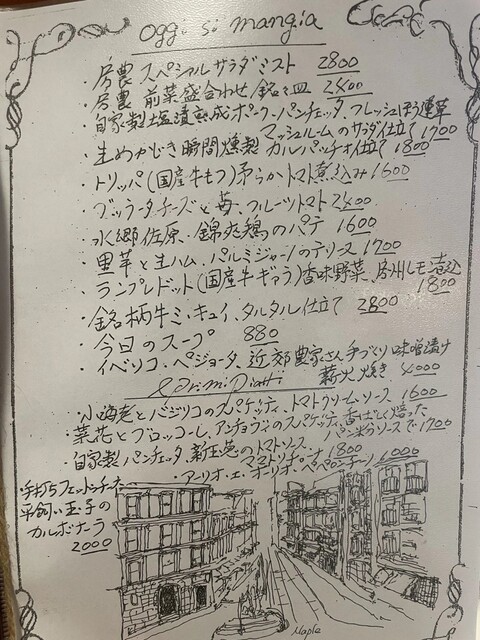 oggi si mangia
・房農 スペシャルサラダミスト 2800
・房農 前菜盛合わせ 銘々皿 2400
・自家製塩漬熟成ポーク・パンチェッタ、フレッシュほう蓮草
マッシュルームのサラダ仕立て 1700
・生めかじき瞬間燻製 カルパッチョ仕立て 1800
・トリッパ(国産牛もつ)柔らかトマト煮込み 1600
・ブッラータチーズと苺、フルーツトマト 2400
・水郷佐原、錦爽鶏のパテ 1600
・里芋と生ハム、パルミジャーノのテリーヌ 1700
・ランプレドット(国産牛ギアラ)香味野菜、房州レモン煮込
1800
・銘柄牛ミ・キュイ、タルタル仕立て 2800
・今日のスープ 880
・イベリコ・ベジョータ、近郊農家さん手づくり味噌漬け
薪火焼き 4000
Primi Piatti
・小海老とバジリコのスパゲッティ、トマトクリームソース 1600
・菜花とブロッコーレ、アンチョヴィのスパゲッティ、香ばしく煎った
パン粉ソースで 1700
・自家製パンチェッタ、新玉葱のトマトソース
アマトリチャーナ 1800
・アーリオ・エ・オーリオ・ペペロンチーノ 1000
・手打ちフェットゥチーネ
平飼い玉子の
カルボナーラ
2000
Maple